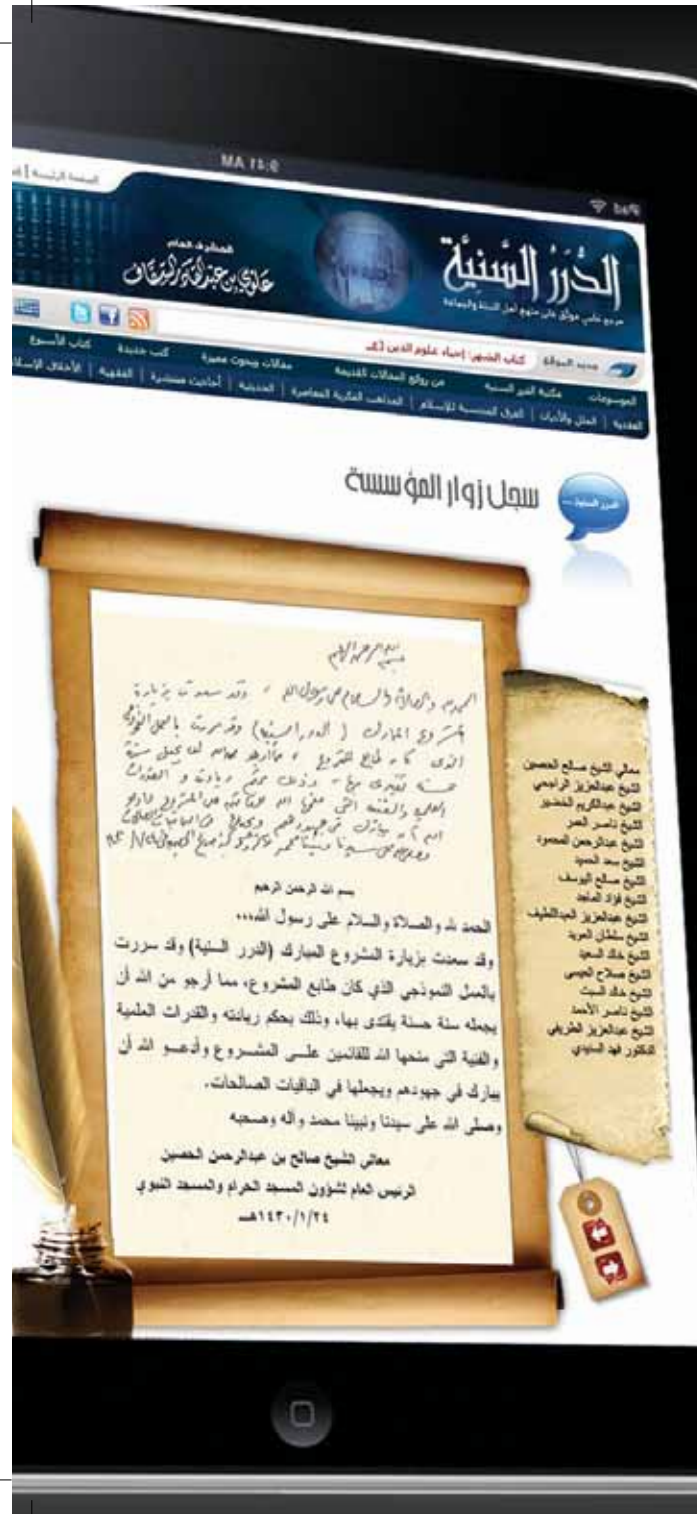 9:41 AM
الصفحة الرئيسة
الدُّرَرُ السَّنيَّة
مرجع علمي موثق على منهج أهل السنة والجماعة
المشرف العام
علوي بن عبدالقادر السقاف
جديد الموقع
كتاب الشهر: إحياء علوم الدين
الموسوعات مكتبة الدرر السنية من روائع المقالات القديمة مقالات وبحوث مميزة كتب جديدة كتاب الأسبوع
العقدية | الملل والأديان | الفرق المنتسبة للإسلام | المذاهب الفكرية المعاصرة | الحديثية | أحاديث منتشرة | الفقهية | الأخلاق
الدرر السنية ...
سجل زوار المؤسسة
بسم الله الرحمن الرحيم
الحمد لله والصلاة والسلام على رسول الله،،،
وقد سعدت بزيارة المشروع المبارك (الدرر السنية) وقد سررت
بالعمل النموذجي الذي كان طابع المشروع، مما أرجو من الله أن
يجعله سنة حسنة يقتدى بها، وذلك بحكم ريادته والقدرات العلمية
والفنية التي منحها الله للقائمين علــى المشــروع وأدعــو الله أن
يبارك في جهودهم ويجعلها في الباقيات الصالحات.
وصلى الله على سيدنا ونبينا محمد وآله وصحبه
معالي الشيخ صالح بن عبدالرحمن الحصين
الرئيس العام لشؤون المسجد الحرام والمسجد النبوي
١٤٣٠/١/٢٤هــ
معالي الشيخ صالح الحصين
الشيخ عبدالعزيز الراجحي
الشيخ عبدالكريم الخضير
الشيخ ناصر العمر
الشيخ عبدالرحمن المحمود
الشيخ سعد الحميد
الشيخ صالح اليوسف
الشيخ فؤاد الماجد
الشيخ عبدالعزيز العبداللطيف
الشيخ سلطان العريد
الشيخ خالد السعيد
الشيخ صلاح العيسى
الشيخ خالد السبت
الشيخ ناصر الأحمد
الشيخ عبدالعزيز الطريفي
الدكتور فهد السنيدي